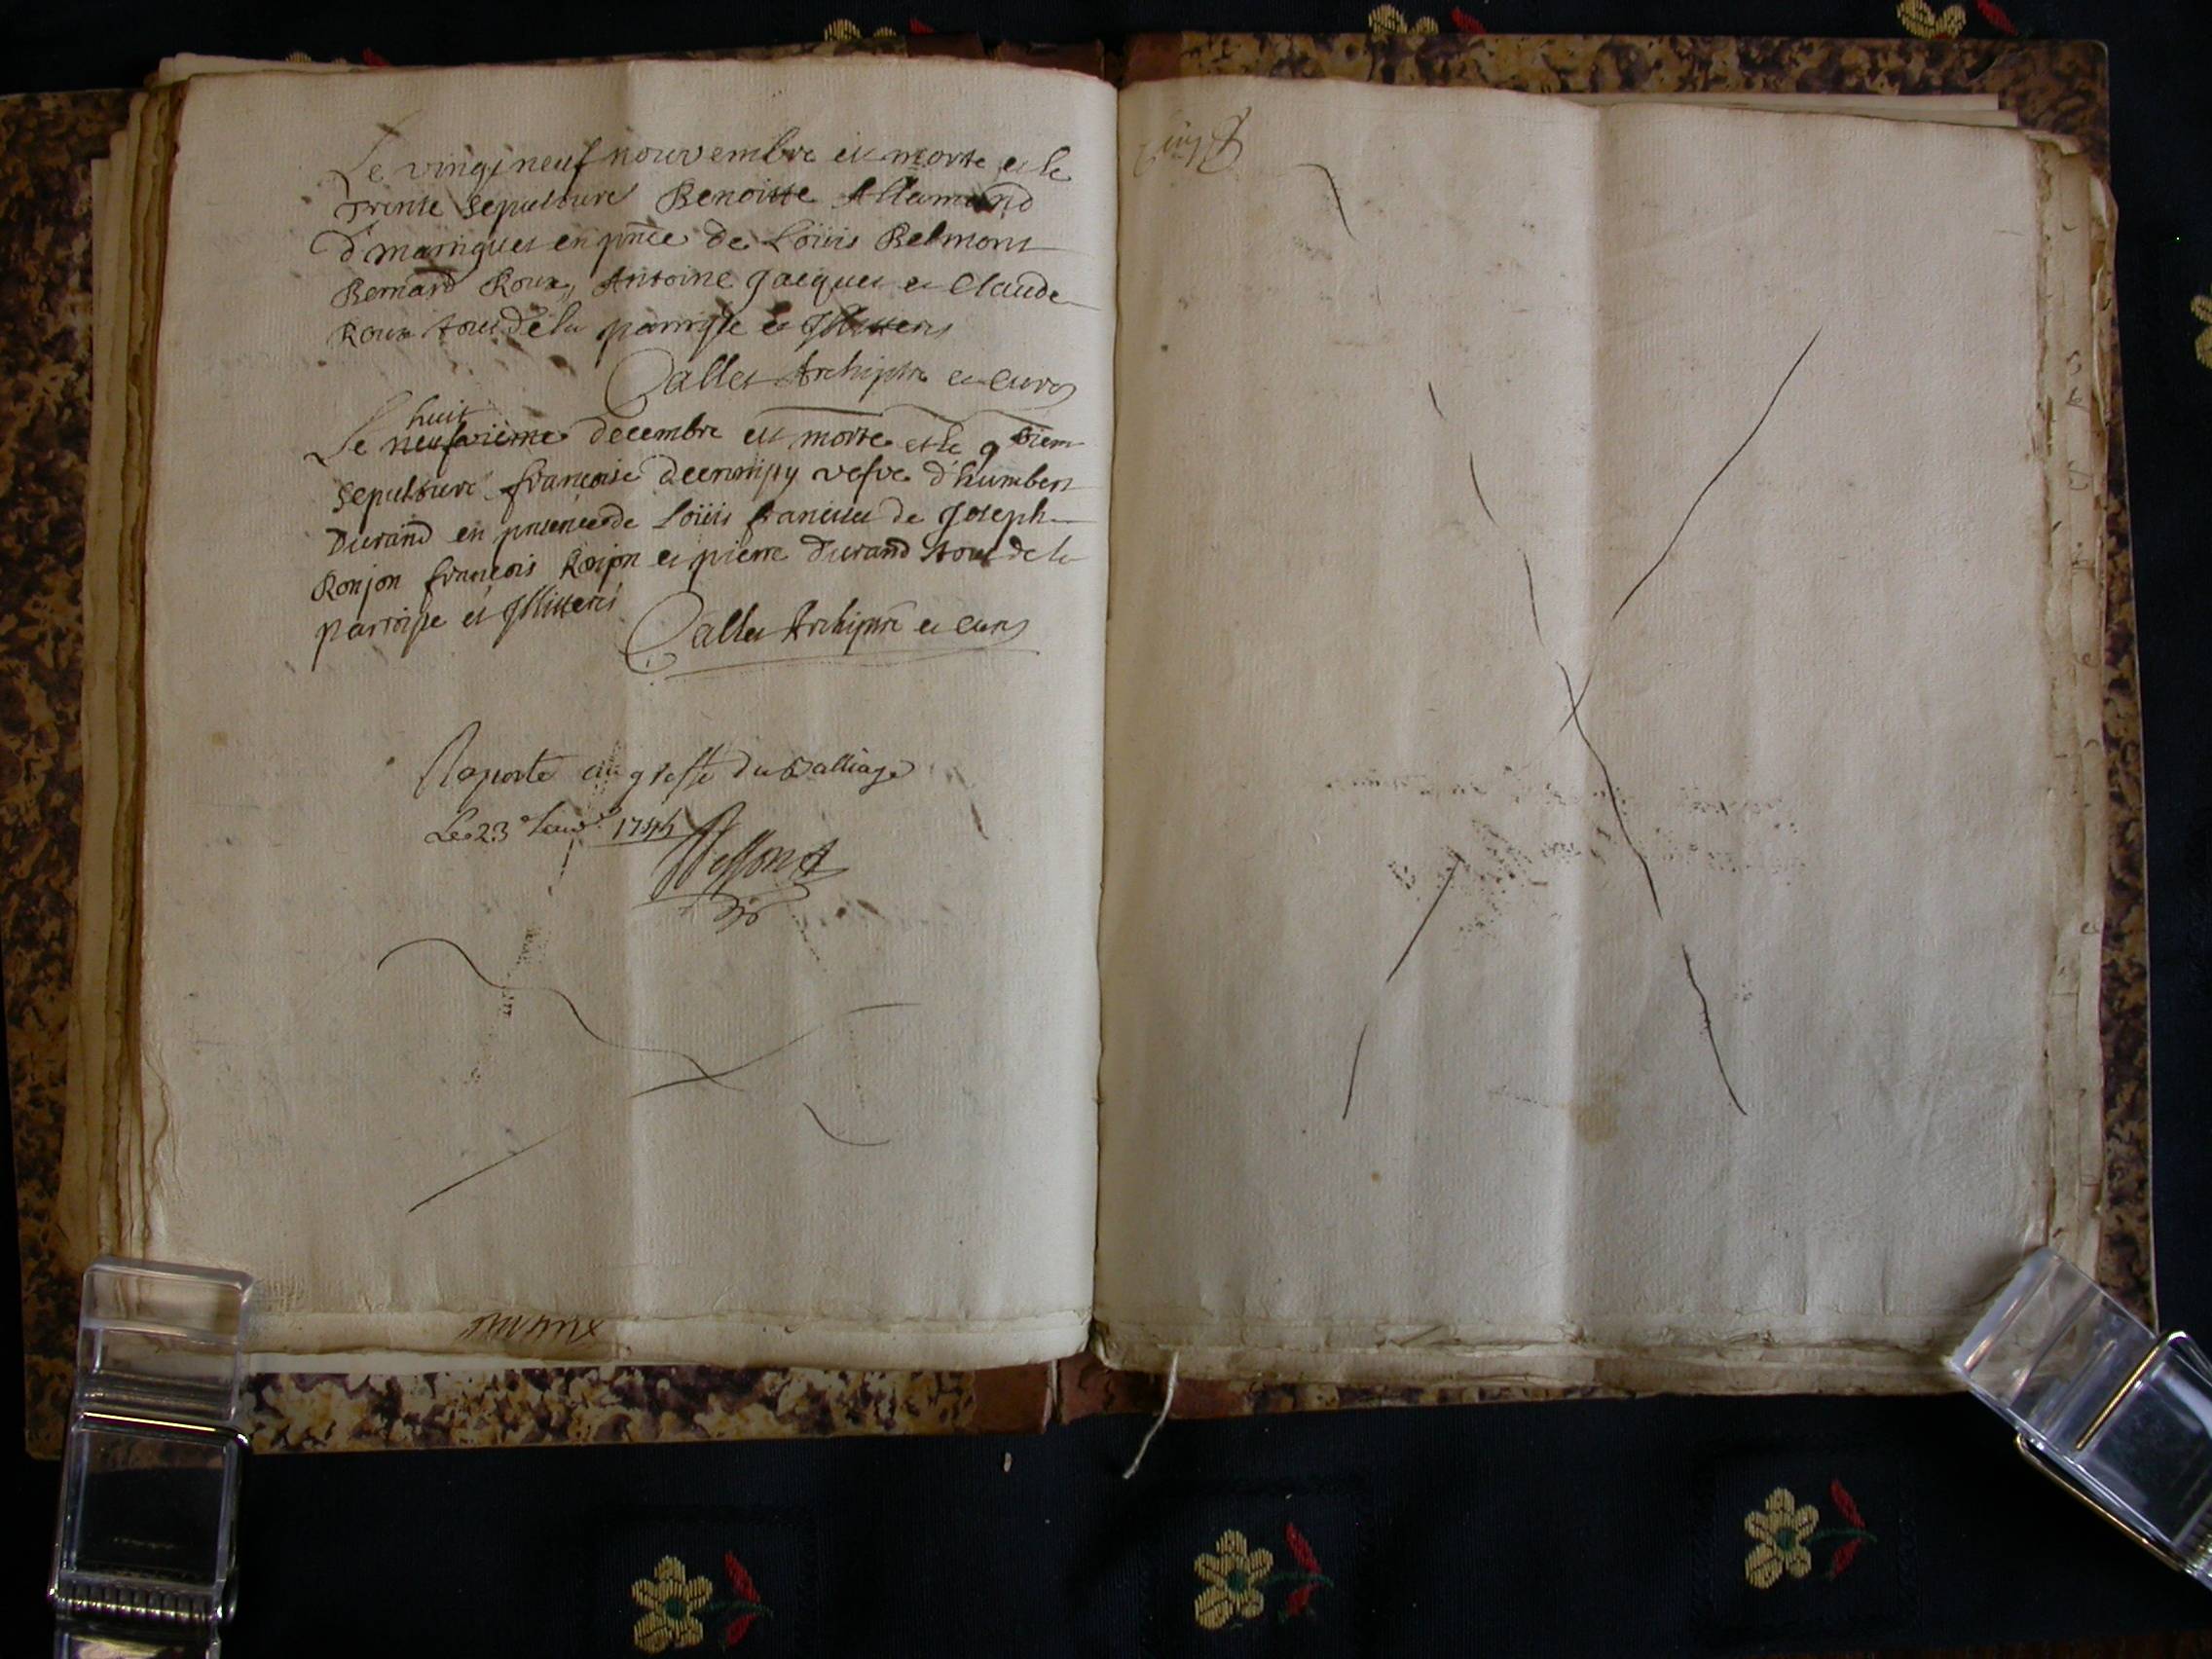 Le vingt neuf nouvembre est morte et le
trente sepulture Benoitte Allamand
d'maringues en pnce de Loüis Belmont
Bernard Roux, Antoine Jacques et Claude
Roux tous de la parroisse et Illitterés
Callet Archiptre et curé
huit
Le neufvième decembre est morte et le 9 viem
sepulture francoise vefve d'humbert
Durand en presence de Loüis de Joseph
Ronjon francois Ronjon et pierre Durand tous de la
parroisse et Illitterés
Callet Archiptre et curé
Raporté au greffe du Balliage
Le 23 Janv. 1744